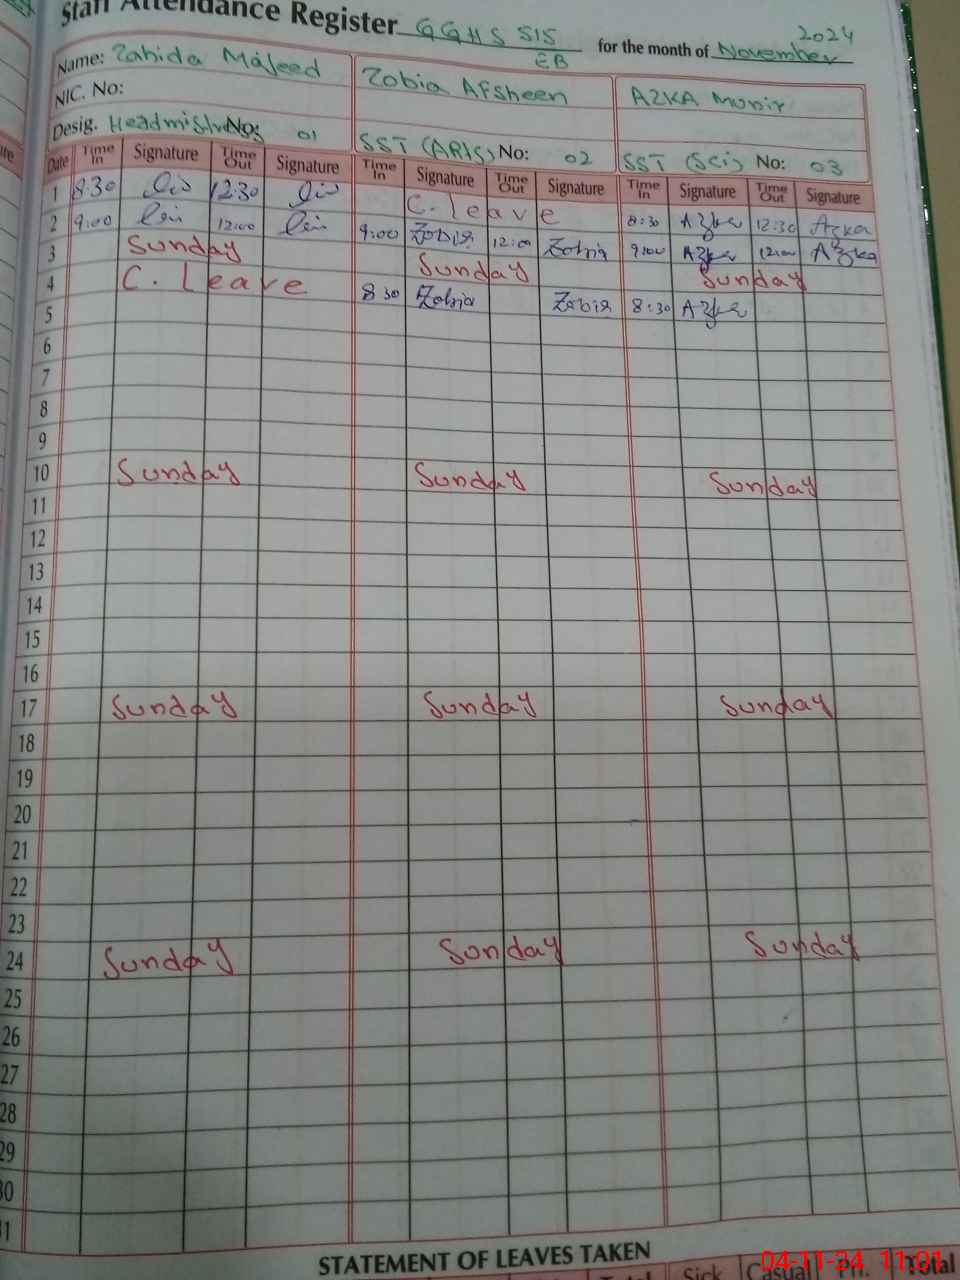 Staff Attendance Register GGHS 515 EB for the month of November 2024
Name: Zahida Majeed Zobia Afsheen AZKA Munir
NIC. No:
Desig. Headmistress No: 01 SST (ARTS) No: 02 SST (Sci) No: 03
Date Time In Signature Time Out Signature Time In Signature Time Out Signature Time In Signature Time Out Signature
1 8:30 12:30 C. leave 8:30 Azka 12:30 Azka
2 9:00 12:00 9:00 Zobia 12:00 Zobia 9:00 Azka 12:00 Azka
3 Sunday Sunday Sunday
4 C. leave 8 30 Zobia Zobia 8:30 Azka
5
6
7
8
9
10 Sunday Sunday Sunday
11
12
13
14
15
16
17 Sunday Sunday Sunday
18
19
20
21
22
23
24 Sunday Sunday Sunday
25
26
27
28
29
30
31
STATEMENT OF LEAVES TAKEN
Sick Casual Pri. Total
04-11-24 11:01